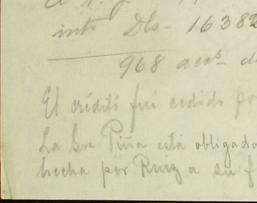 into Dls - 16382
968 accs d
El crédito fué cedido po
La Sra Piña está obligada
hecha por Ruiz a su f